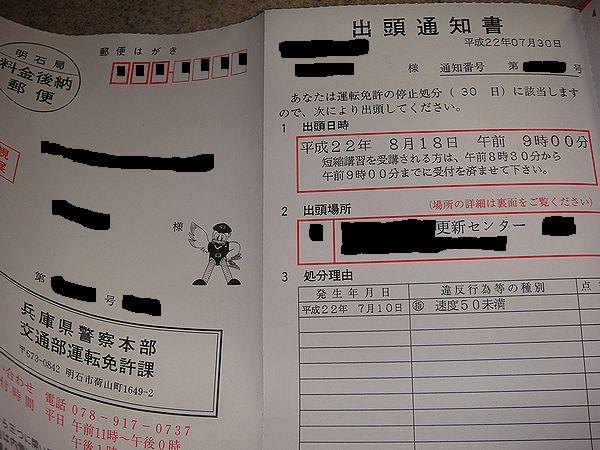 明石局
料金後納
郵便
郵便はがき
様
第 号
兵庫県警察本部
交通部運転免許課
〒673-0842 明石市荷山町1649-2
い合わせ 電話 078-917-0737
付時間 平日 午前11時～午後0時
出頭通知書
平成22年07月30日
様 通知番号 第 号
あなたは運転免許の停止処分(30日)に該当します
ので、次により出頭してください。
1 出頭日時
平成22年 8月18日 午前 9時00分
短縮講習を受講される方は、午前8時30分から
午前9時00分までに受付を済ませて下さい。
2 出頭場所 (場所の詳細は裏面をご覧ください)
更新センター
3 処分理由
発生年月日 違反行為等の種別 点
平成22年 7月10日 速度50未満